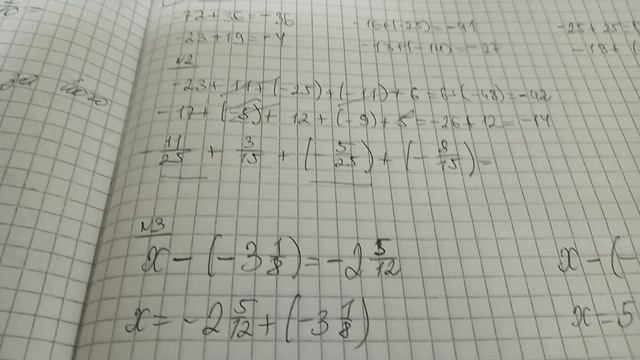 -72+36=-36 -16+(-25)=-41 -25+25=
-23+19=-4 -13+(-14)=-27 -19+(
№2
-23+11+(-25)+(-11)+6=6+(-48)=-42
-17+(-5)+12+(-9)+5=-26+12=-14
-11/25+3/15+(-5/25)+(-8/15)=
№3
x-(-3 1/8)=-2 5/12 x-(-
x=-2 5/12+(-3 1/8) x=5